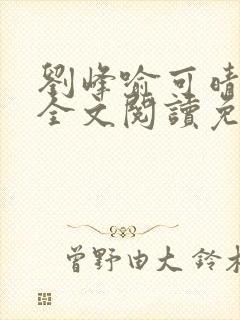 劉峰喻可晴
全文閱讀免
曾野由大 鈴木